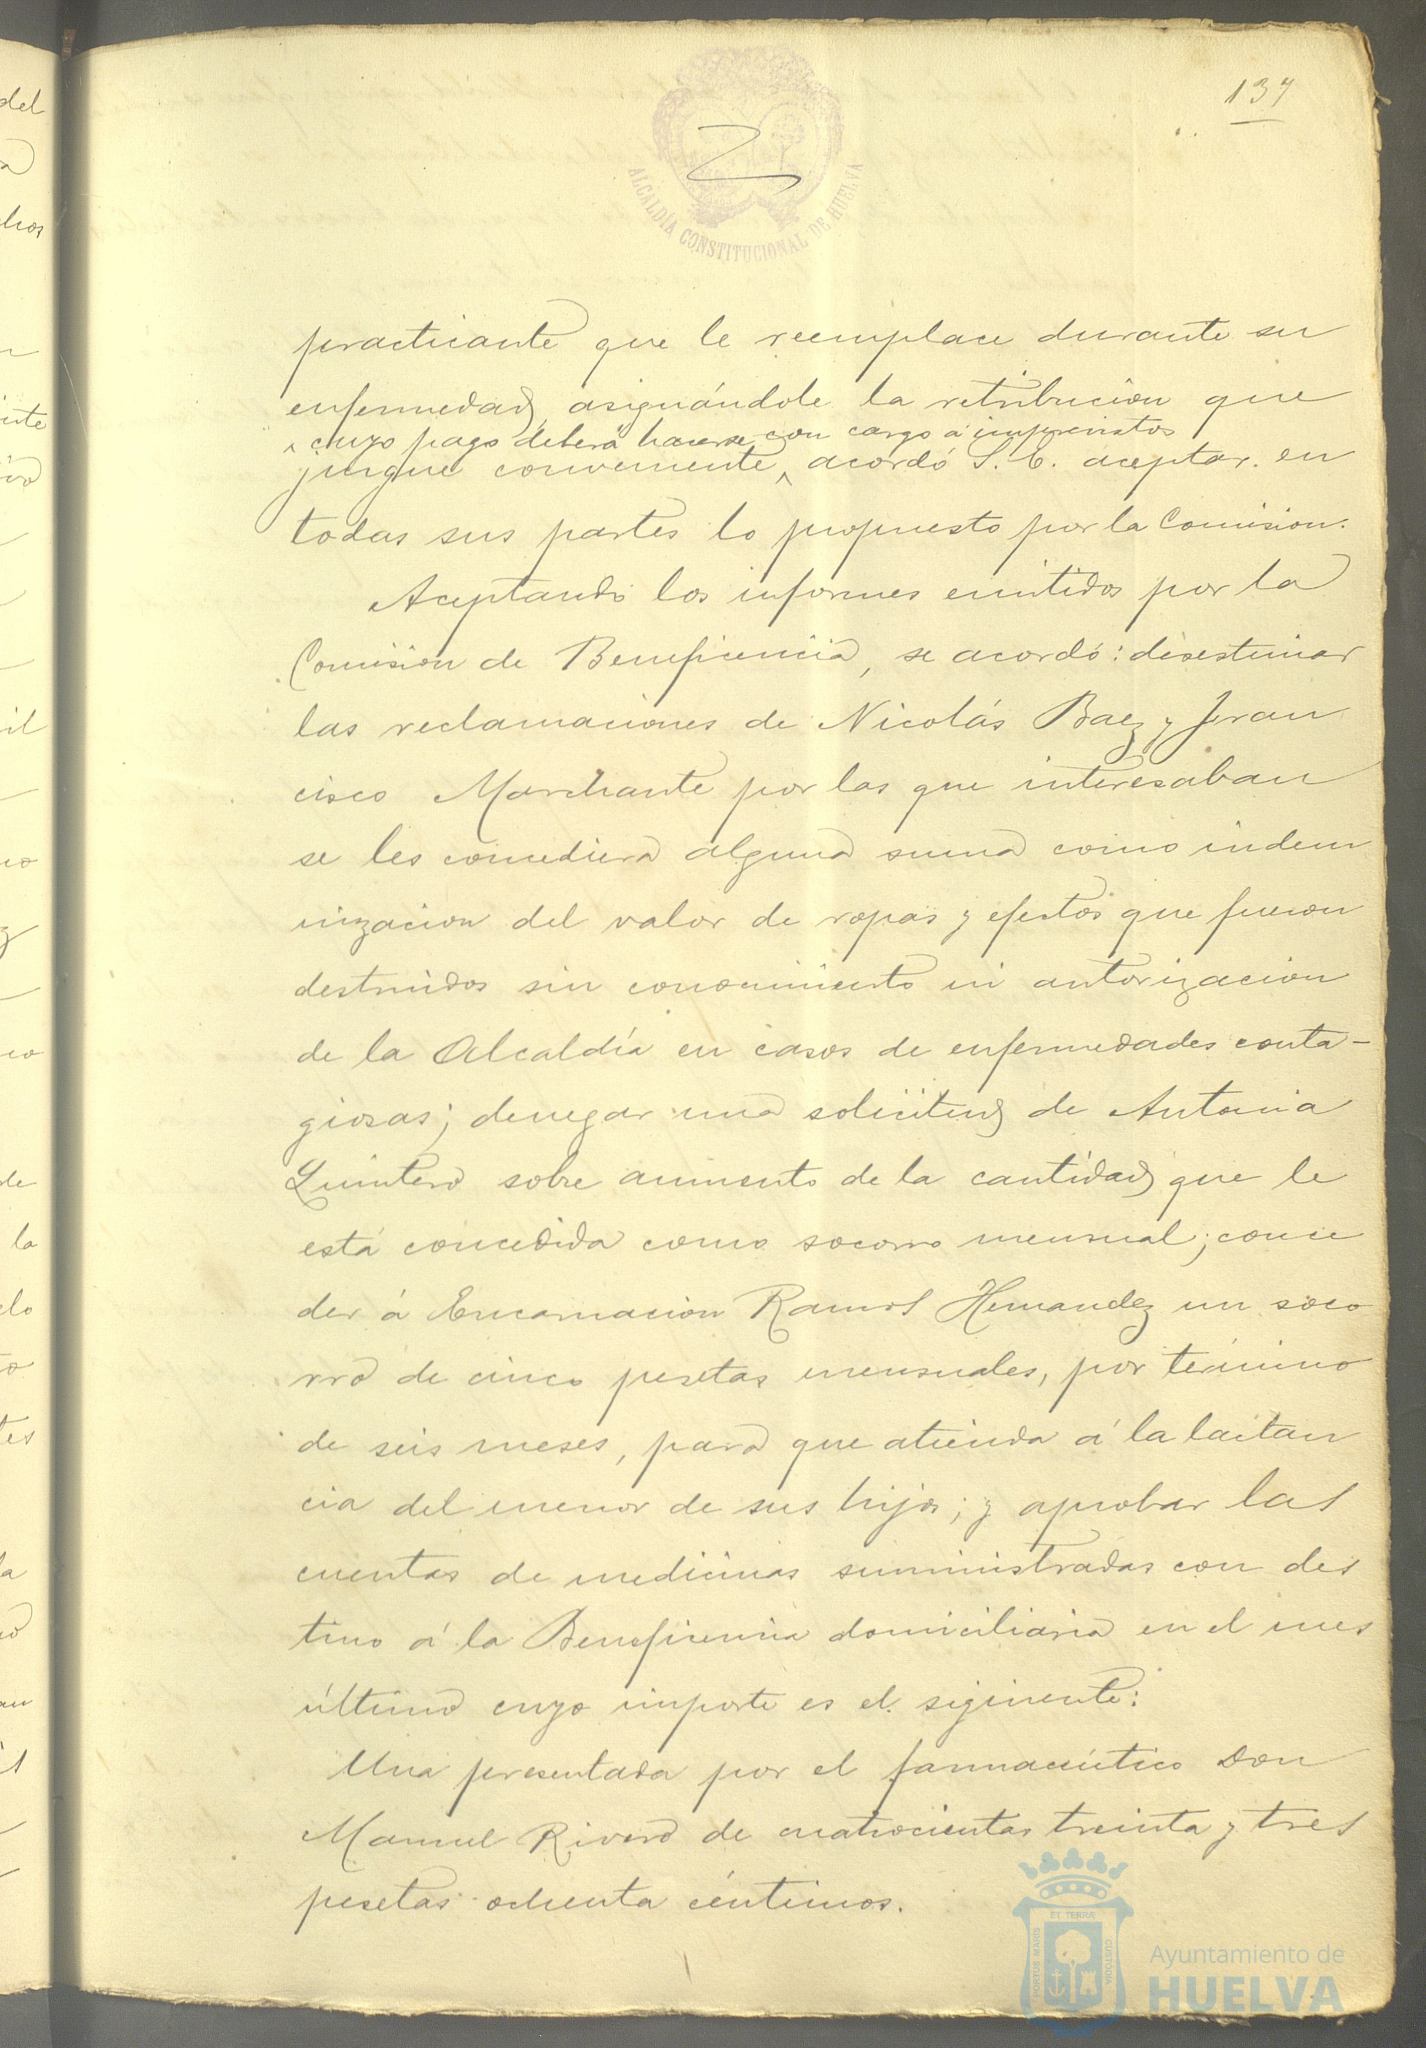 137
ALCALDÍA CONSTITUCIONAL DE HUELVA
practicante que le reemplace durante su
enfermedad, asignándole la retribucion que
^ cuyo pago deberá hacerse con cargo á imprevistos
juzgue conveniente ^, acordó S. E. aceptar en
todas sus partes lo propuesto por la Comision.
Aceptando los informes emitidos por la
Comision de Beneficencia, se acordó: desestimar
las reclamaciones de Nicolás Baez y Fran
cisco Marchante por las que interesaban
se les concediera alguna suma como indem
nizacion del valor de ropas y efectos que fueron
destruidos sin conocimiento ni autorizacion
de la Alcaldía en casos de enfermedades conta-
giosas; denegar una solicitud de Antonia
Quintero sobre aumento de la cantidad que le
está concedida como socorro mensual; conce
der á Encarnacion Ramos Hernandez un soco
rro de cinco pesetas mensuales, por término
de seis meses, para que atienda á la lactan
cia del menor de sus hijos; y aprobar las
cuentas de medicinas suministradas con des
tino á la Beneficencia domiciliaria en el mes
último cuyo importe es el siguiente:
Una presentada por el farmacéutico Don
Manuel Rivero de cuatrocientas treinta y tres
pesetas ochenta céntimos.
PORTUS MARIS ET TERRÆ CUSTODIA
Ayuntamiento de
HUELVA